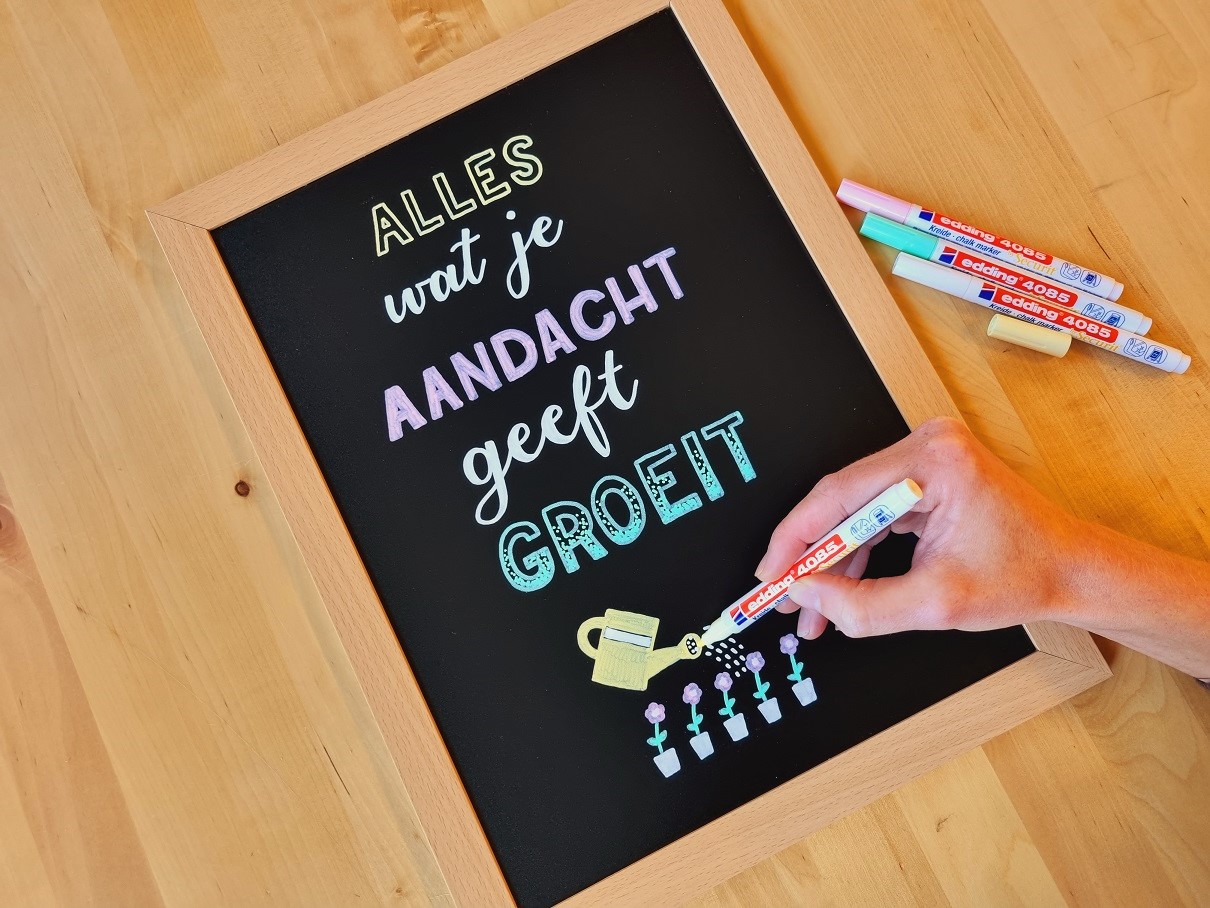 ALLES
wat je
AANDACHT
geeft
GROEIT
edding 4085
Kreide - chalk marker
Securit
edding 4085
edding 4085
Kreide - chalk marker
Securit
edding 4085